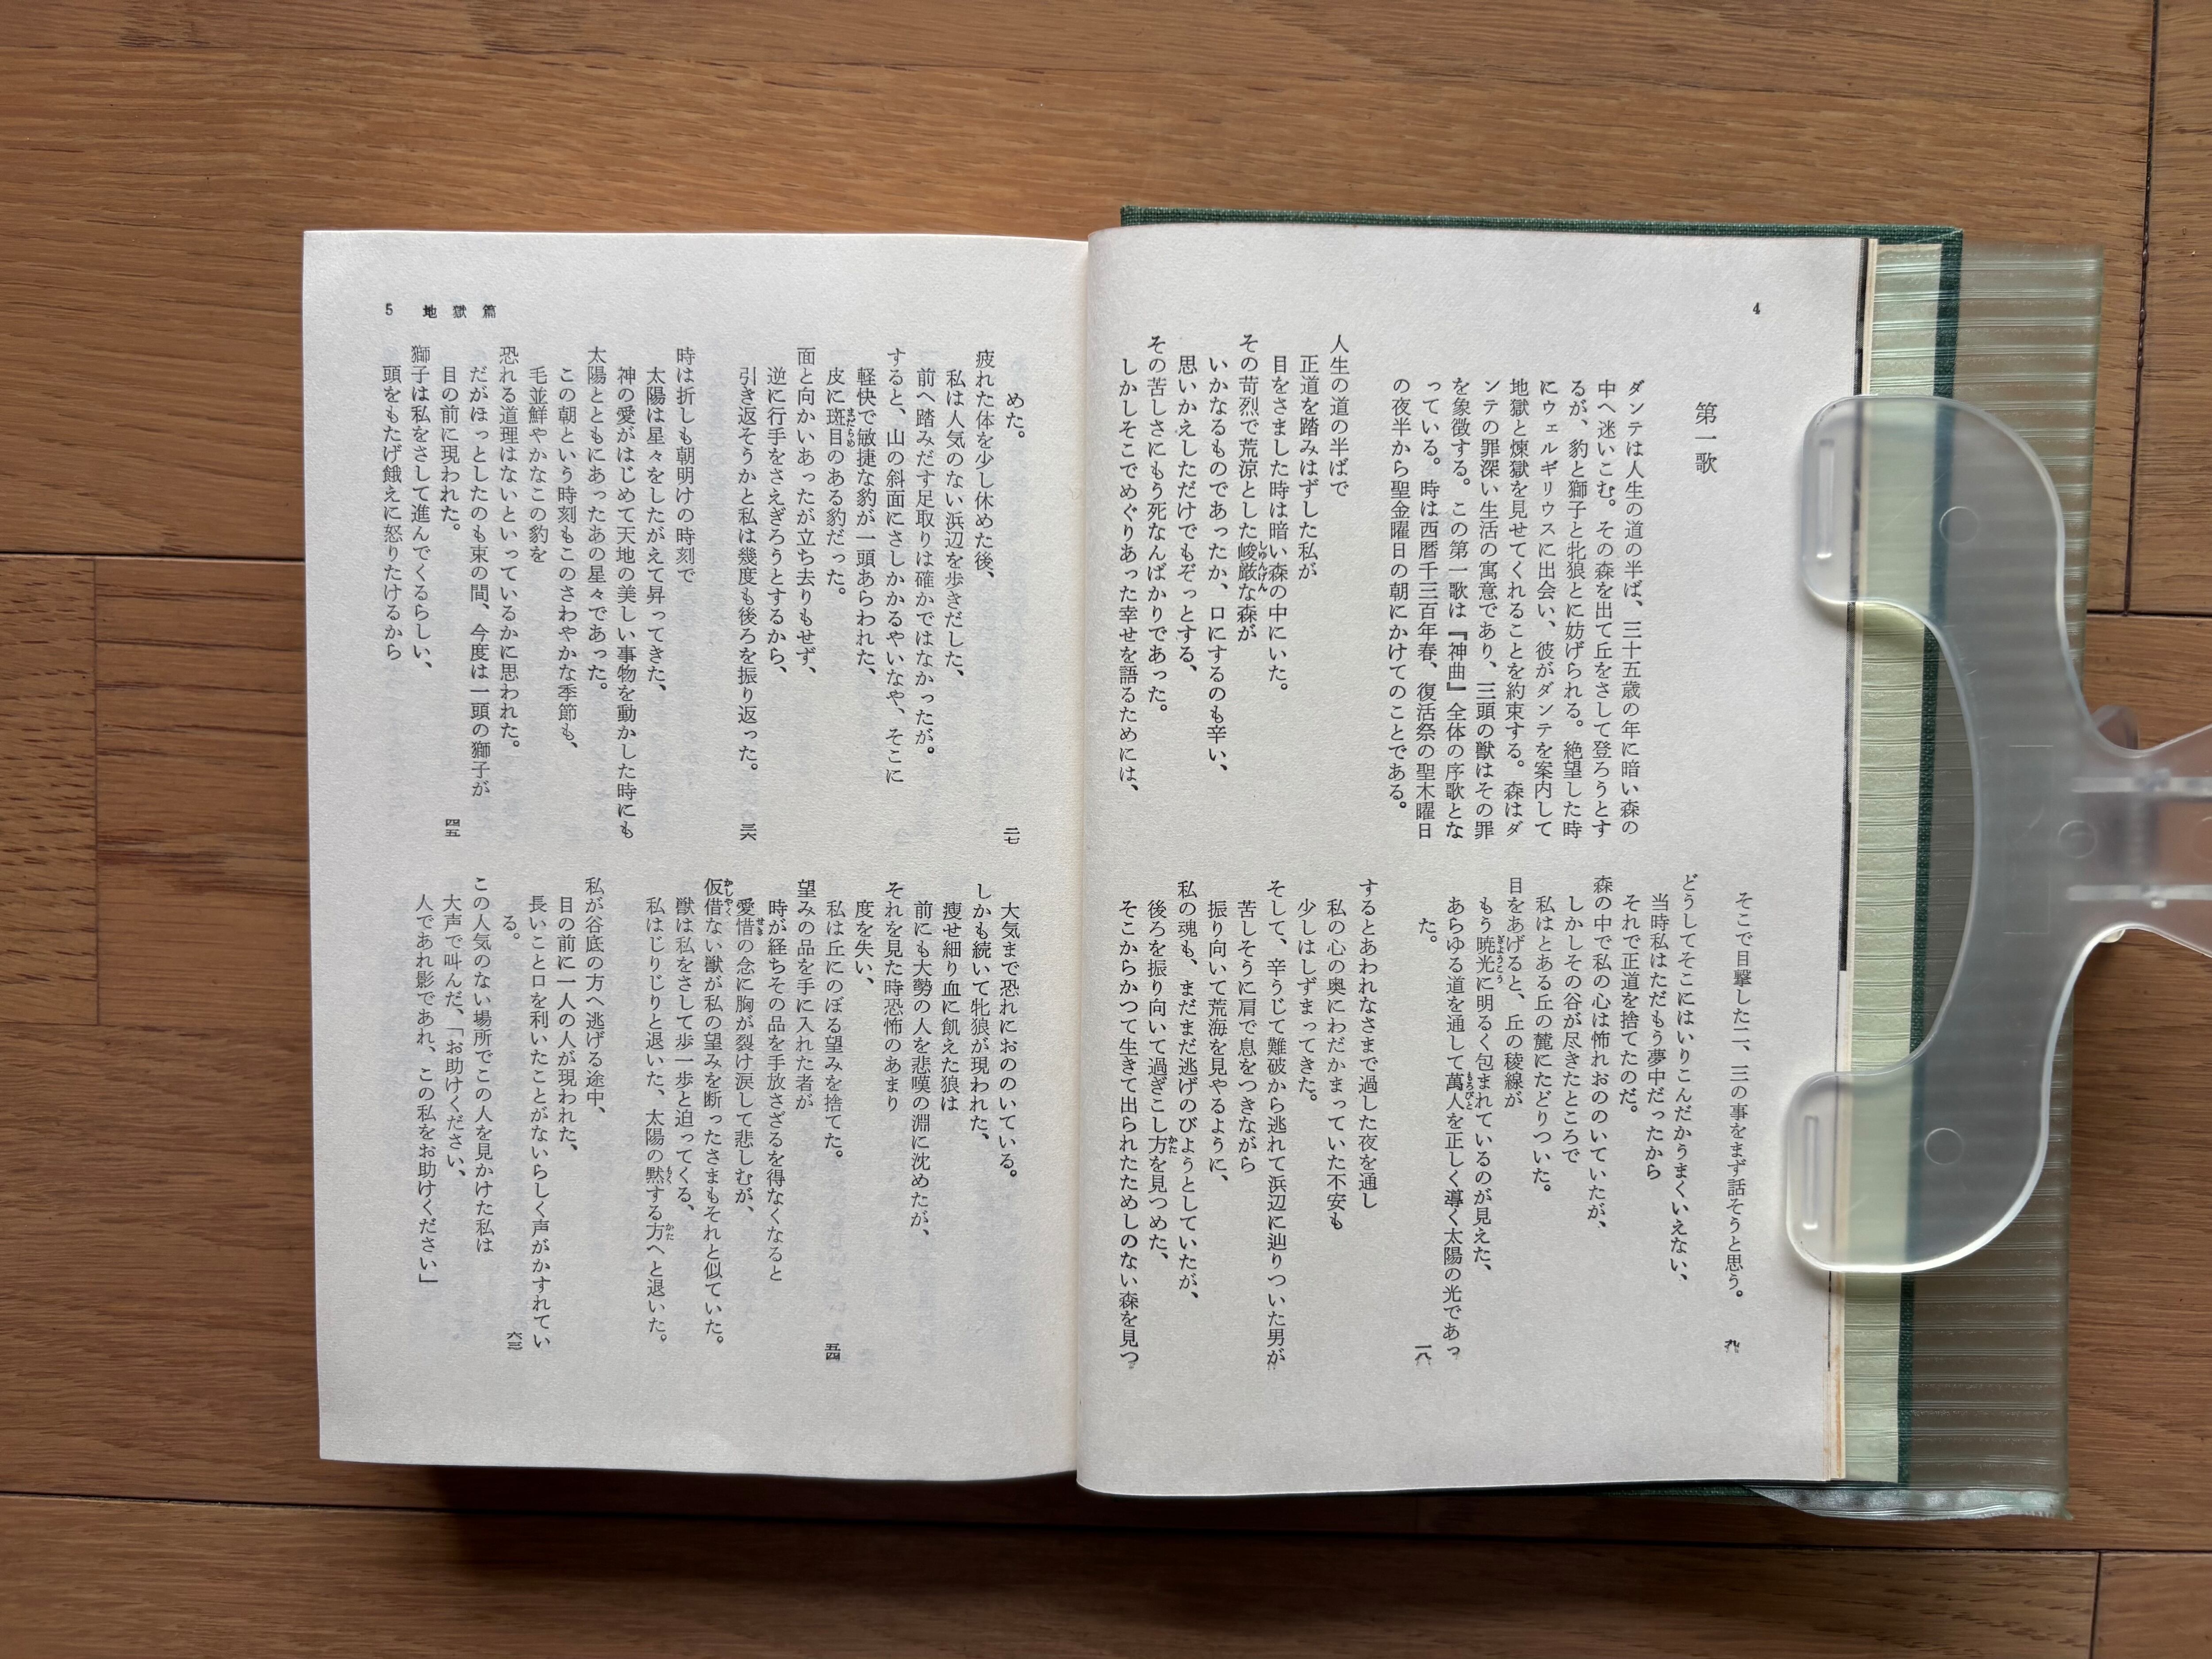 4
第一歌
ダンテは人生の道の半ば、三十五歳の年に暗い森の
中へ迷いこむ。その森を出て丘をさして登ろうとす
るが、豹と獅子と牝狼とに妨げられる。絶望した時
にウェルギリウスに出会い、彼がダンテを案内して
地獄と煉獄を見せてくれることを約束する。森はダ
ンテの罪深い生活の寓意であり、三頭の獣はその罪
を象徴する。この第一歌は『神曲』全体の序歌とな
っている。時は西暦千三百年春、復活祭の聖木曜日
の夜半から聖金曜日の朝にかけてのことである。
人生の道の半ばで
正道を踏みはずした私が
目をさました時は暗い森の中にいた。
その苛烈で荒涼とした峻厳な森が
しゅんげん
いかなるものであったか、口にするのも辛い、
思いかえしただけでもぞっとする、
その苦しさにもう死なんばかりであった。
しかしそこでめぐりあった幸せを語るためには、
そこで目撃した二、三の事をまず話そうと思う。
九
どうしてそこにはいりこんだかうまくいえない、
当時私はただもう夢中だったから
それで正道を捨てたのだ。
森の中で私の心は怖れおののいていたが、
しかしその谷が尽きたところで
私はとある丘の麓にたどりついた。
目をあげると、丘の稜線が
もう暁光に明るく包まれているのが見えた、
ぎょうこう
あらゆる道を通して萬人を正しく導く太陽の光であっ
もろびと
た。
一八
するとあわれなさまで過した夜を通し
私の心の奥にわだかまっていた不安も
少しはしずまってきた。
そして、辛うじて難破から逃れて浜辺に辿りついた男が
苦しそうに肩で息をつきながら
振り向いて荒海を見やるように、
私の魂も、まだまだ逃げのびようとしていたが、
後ろを振り向いて過ぎこし方を見つめた、
かた
そこからかつて生きて出られたためしのない森を見つ
5 地獄篇
めた。
二七
疲れた体を少し休めた後、
私は人気のない浜辺を歩きだした、
前へ踏みだす足取りは確かではなかったが。
すると、山の斜面にさしかかるやいなや、そこに
軽快で敏捷な豹が一頭あらわれた、
皮に斑目のある豹だった。
まだらめ
面と向かいあったが立ち去りもせず、
逆に行手をさえぎろうとするから、
引き返そうかと私は幾度も後ろを振り返った。
三六
時は折しも朝明けの時刻で
太陽は星々をしたがえて昇ってきた、
神の愛がはじめて天地の美しい事物を動かした時にも
太陽とともにあったあの星々であった。
この朝という時刻もこのさわやかな季節も、
毛並鮮やかなこの豹を
恐れる道理はないといっているかに思われた。
だがほっとしたのも束の間、今度は一頭の獅子が
目の前に現われた。
四五
獅子は私をさして進んでくるらしい、
頭をもたげ餓えに怒りたけるから
大気まで恐れにおののいている。
しかも続いて牝狼が現われた、
痩せ細り血に飢えた狼は
前にも大勢の人を悲嘆の淵に沈めたが、
それを見た時恐怖のあまり
度を失い、
私は丘にのぼる望みを捨てた。
五四
望みの品を手に入れた者が
時が経ちその品を手放さざるを得なくなると
愛惜の念に胸が裂け涙して悲しむが、
せき
仮借ない獣が私の望みを断ったさまもそれと似ていた。
かしゃく
獣は私をさして歩一歩と迫ってくる、
私はじりじりと退いた、太陽の黙する方へと退いた。
もく
かた
私が谷底の方へ逃げる途中、
目の前に一人の人が現われた、
長いこと口を利いたことがないらしく声がかすれてい
る。
六三
この人気のない場所でこの人を見かけた私は
大声で叫んだ、「お助けください、
人であれ影であれ、この私をお助けください」